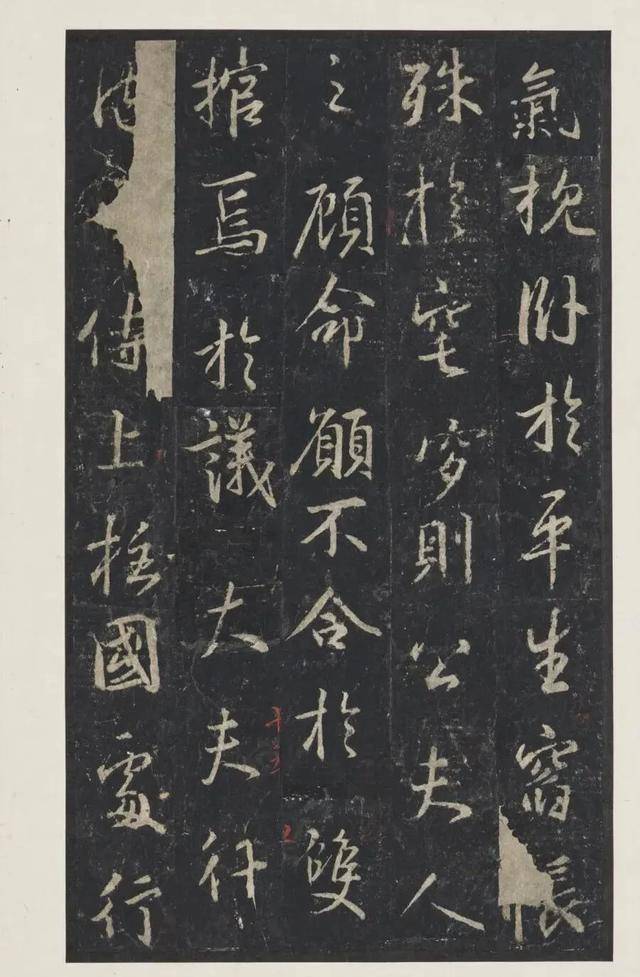 氣枕卧於平生悵
殊於窀穸則公夫人
之顧命願不合於雙
棺焉於議大夫行
侍上柱國處行